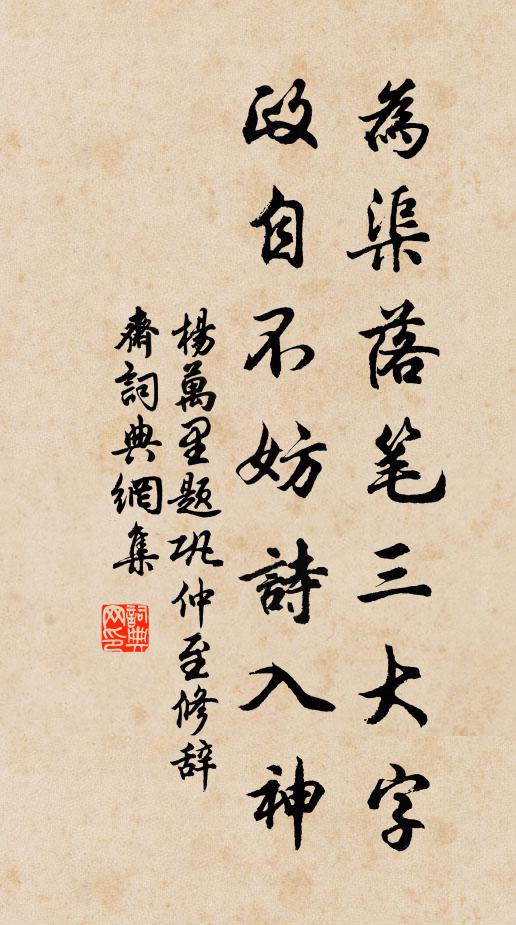 為渠落笔三大字
政自不妨詩入神
楊萬里题巩仲至修辞
齋詞典網集
詞典
网印